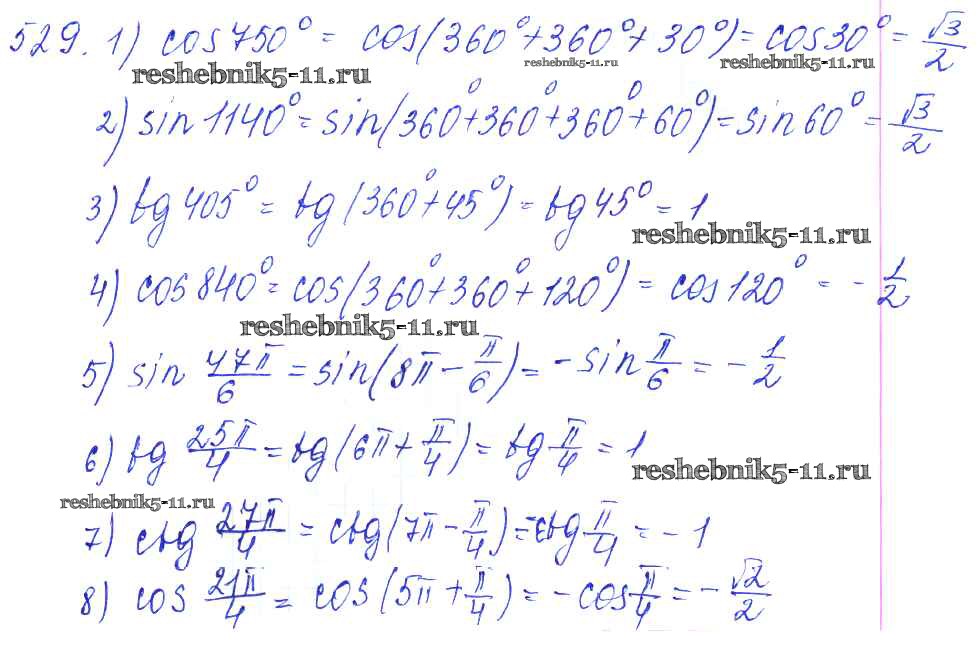 529. 1) cos 750° = cos(360° + 360° + 30°) = cos 30° = √3/2
reshebnik5-11.ru reshebnik5-11.ru reshebnik5-11.ru
2) sin 1140° = sin(360° + 360° + 360° + 60°) = sin 60° = √3/2
3) tg 405° = tg(360° + 45°) = tg 45° = 1
reshebnik5-11.ru
4) cos 840° = cos(360° + 360° + 120°) = cos 120° = -1/2
reshebnik5-11.ru
5) sin 47π/6 = sin(8π - π/6) = -sin π/6 = -1/2
6) tg 25π/4 = tg(6π + π/4) = tg π/4 = 1
reshebnik5-11.ru
reshebnik5-11.ru
7) ctg 27π/4 = ctg(7π - π/4) = -ctg π/4 = -1
8) cos 21π/4 = cos(5π + π/4) = -cos π/4 = -√2/2